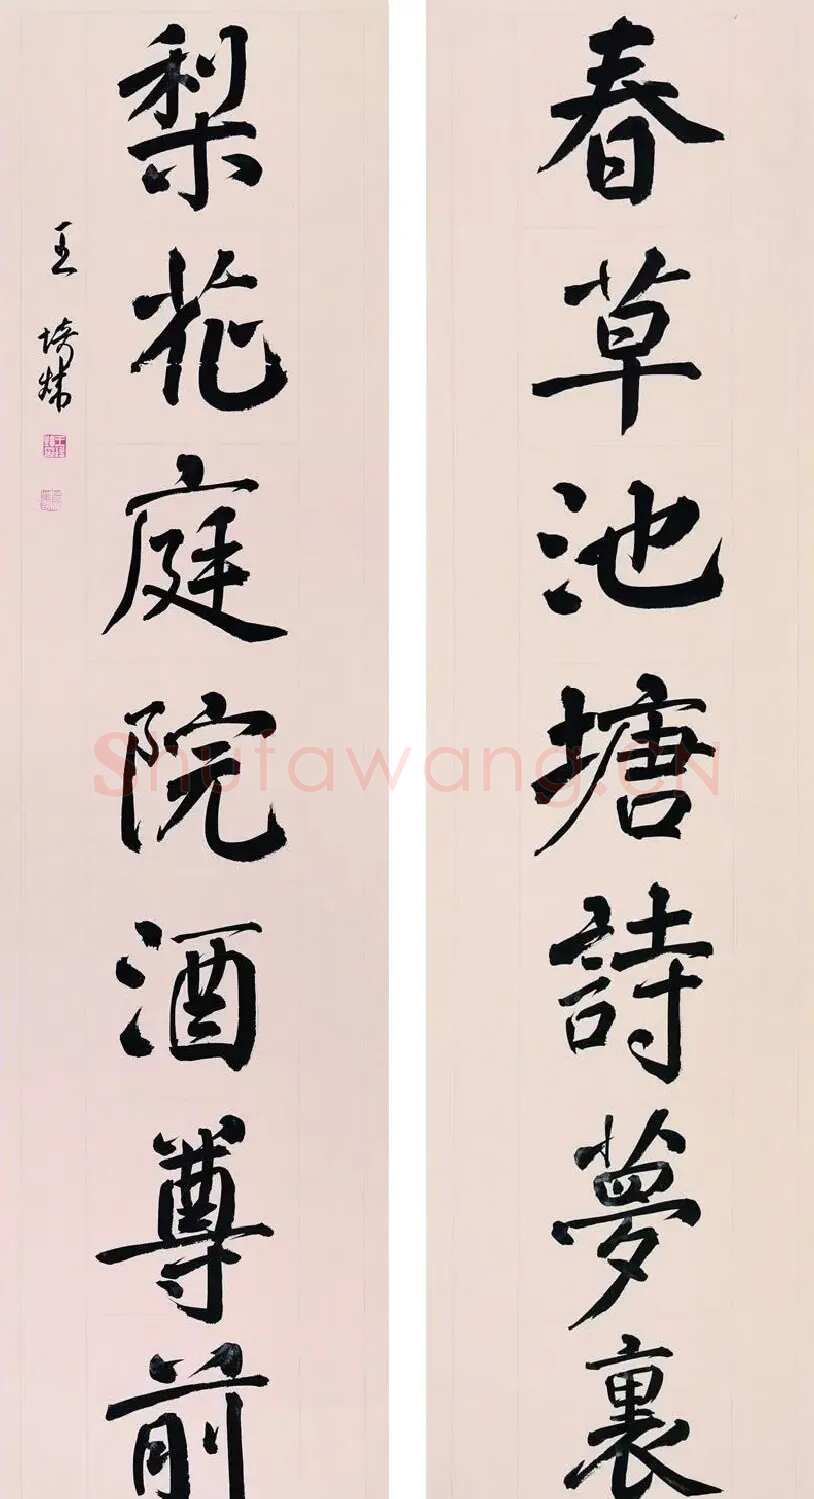 春草池塘詩夢裏
梨花庭院酒尊前
王琦煒
Shufawang.CN